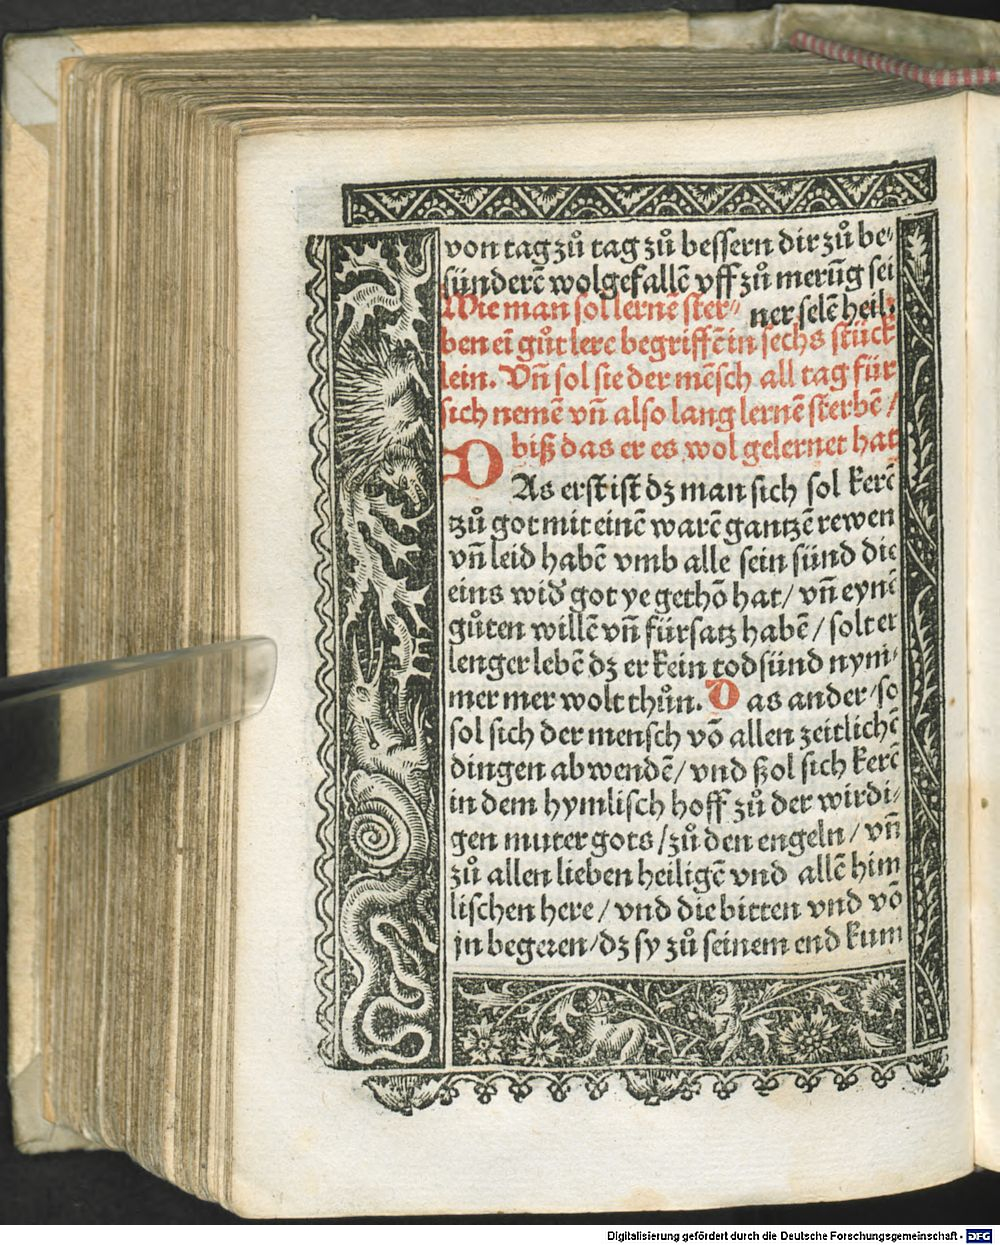 von tag zů tag zů bessern dir zů be⸗
sünderē wolgefallē vff zů merūg sei
ner selē heil.
Wie man sol lernē ster⸗
ben eī gůt lere begriffē in sechs stück
lein. Vñ sol sie der mēsch all tag für
sich nemē vñ also lang lernē sterbē /
biß das er es wol gelernet hat
DAs erst ist dz man sich sol kerē
tzů got mit einē warē gantzē rewen
vñ leid habē vmb alle sein sünd die
eins wiď got ye gethō hat / vñ eynē
gůten willē vñ fürsatz habē / solt er
lenger lebē dz er kein todsünd nym⸗
mer mer wolt thůn. Das ander / so
sol sich der mensch vō allen zeitlichē
dingen abwendē / vnd ßol sich kerē
in dem hymlisch hoff zů der wirdi⸗
gen muter gots / zů den engeln / vñ
zů allen lieben heiligē vnd allē him
lischen here / vnd die bitten vnd vō
jn begeren / dz sy zů seinem end kum
Digitalisierung gefördert durch die Deutsche Forschungsgemeinschaft - DFG